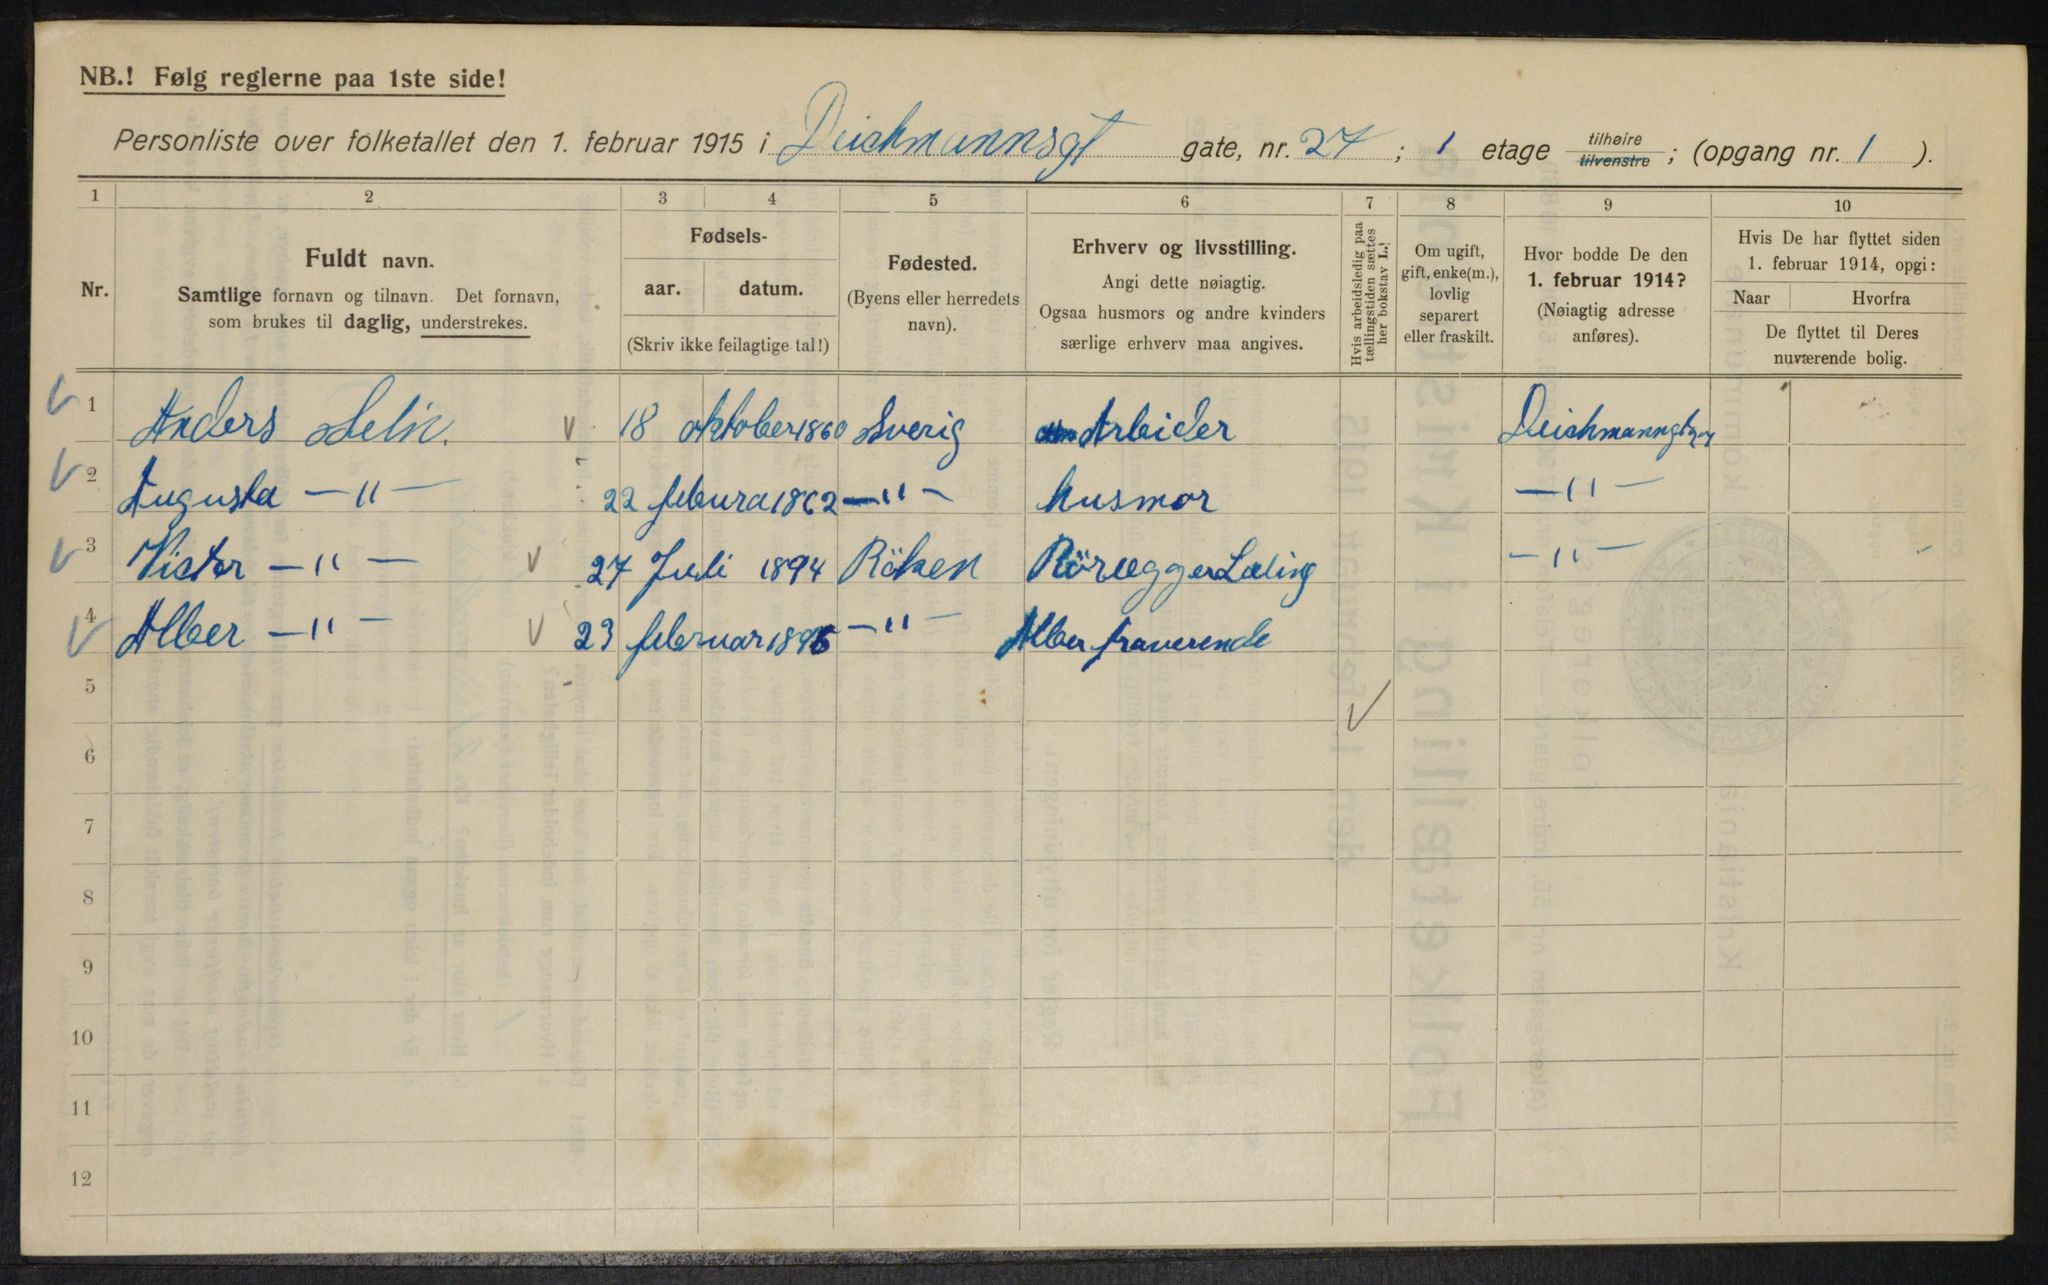 NB.! Følg reglerne paa 1ste side!
Personliste over folketallet den 1. februar 1915 i Deichmannsgt gate, nr. 27 ; 1 etage tilhøire tilvenstre ; (opgang nr. 1 ).
1 2 3 4 5 6 7 8 9 10
Nr.
Fuldt navn.
Samtlige fornavn og tilnavn. Det fornavn,
som brukes til daglig, understrekes.
Fødsels-
aar. datum.
(Skriv ikke feilagtige tal!)
Fødested.
(Byens eller herredets
navn).
Erhverv og livsstilling.
Angi dette nøiagtig.
Ogsaa husmors og andre kvinders
særlige erhverv maa angives.
Hvis arbeidsledig paa
tællingstiden sættes
her bokstav L.!
Om ugift,
gift, enke(m.),
lovlig
separert
eller fraskilt.
Hvor bodde De den
1. februar 1914?
(Nøiagtig adresse
anføres).
Hvis De har flyttet siden
1. februar 1914, opgi:
Naar Hvorfra
De flyttet til Deres
nuværende bolig.
1 Anders Selin. 18 oktober 1860 Sverig Arbeider Deichmannsgt 27
2 Augusta —"— 22 februra 1862 —"— husmor —"—
3 Victor —"— 27 Juli 1894 Röken Rörlegger Læling —"—
4 Alber —"— 23 februar 1896 —"— Alber fraverende
5
6
7
8
9
10
11
12